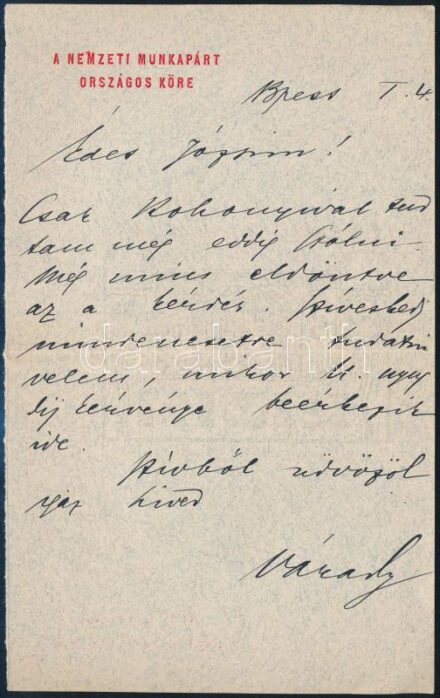 A NEMZETI MUNKAPÁRT
ORSZÁGOS KÖRE
Bpest I. 4.
Édes Józsim!
Csak Kohonyival tud
tam még eddig szólni.
Még nincs eldöntve
az a kérdés. Szíveskedj
mindenesetre tudatni
velem, mikor
kérvénye beérkezik
ide.
Szívből üdvözöl
igaz híved
Várady
darabanth